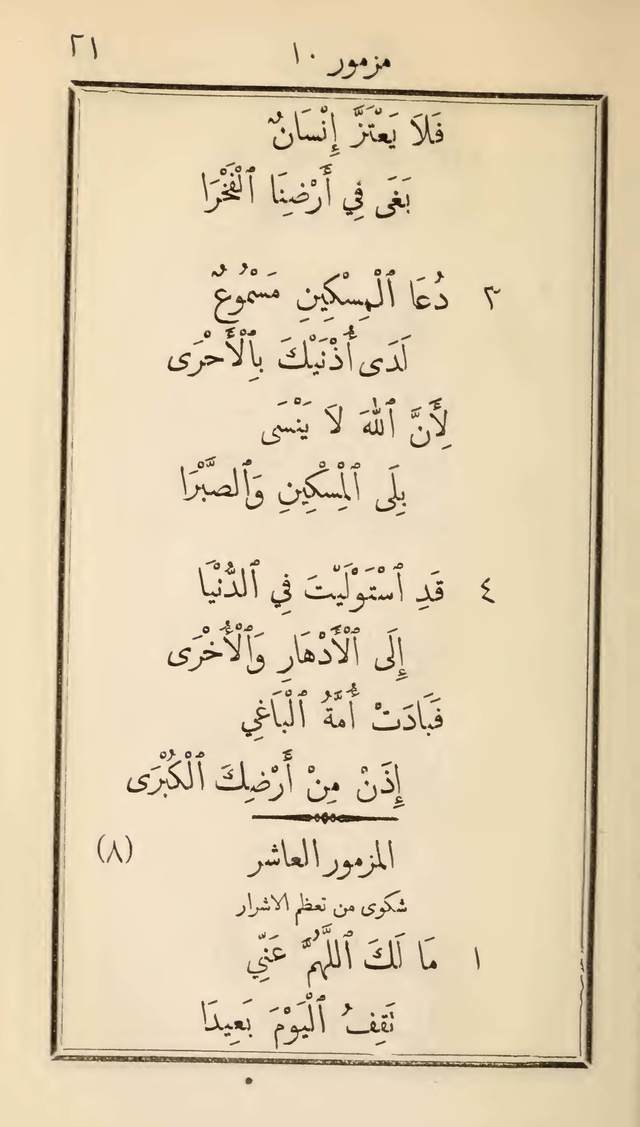 مزمور ١٠ ٢١
فَلاَ يَعْتَزَّ إِنْسَانٌ
بَغَى فِي أَرْضِنَا ٱلْفَخْرَا
٣ دُعَا ٱلْمِسْكِينِ مَسْمُوعٌ
لَدَى أُذْنَيْكَ بِٱلْأَحْرَى
لِأَنَّ ٱللّٰهَ لاَ يَنْسَى
بِلَى ٱلْمِسْكِينِ وَٱلصَّبْرَا
٤ قَدِ ٱسْتَوْلَيْتَ فِي ٱلدُّنْيَا
إِلَى ٱلْأَدْهَارِ وَٱلْأُخْرَى
فَبَادَتْ أُمَّةُ ٱلْبَاغِي
إِذَنْ مِنْ أَرْضِكَ ٱلْكُبْرَى
المزمور العاشر (٨)
شكوى من تعظم الاشرار
١ مَا لَكَ ٱللَّهُمَّ عَنِّي
تَقِفُ ٱلْيَوْمَ بَعِيدَا